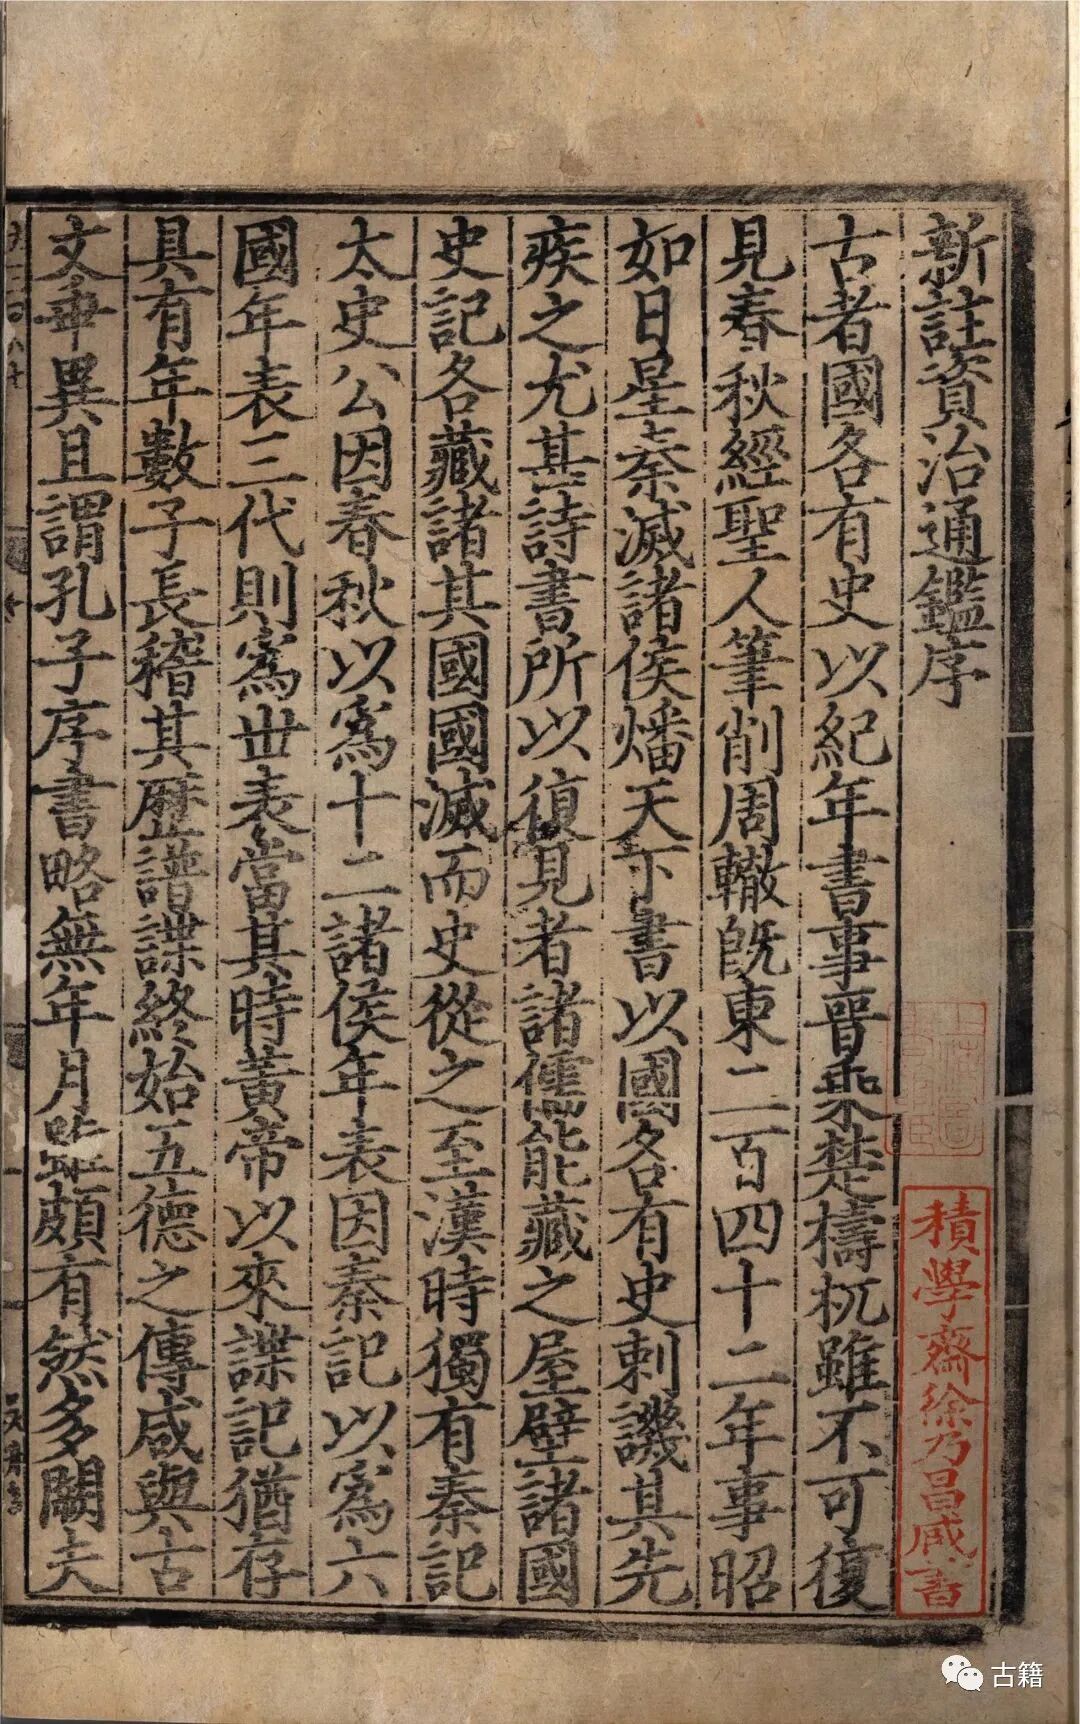 新註資治通鑑序
古者國各有史以紀年書事晉乘楚檮杌雖不可復
見春秋經聖人筆削周轍旣東二百四十二年事昭
如日星秦滅諸侯燔天下書以國各有史刺譏其先
疾之尤甚詩書所以復見者諸儒能藏之屋壁諸國
史記各藏諸其國國滅而史從之至漢時獨有秦記
太史公因春秋以爲十二諸侯年表因秦記以爲六
國年表三代則爲世表當其時黃帝以來諜記猶存
具有年數子長稽其歷譜諜終始五德之傳咸與古
文乖異且謂孔子序書略無年月雖頗有然多闕夫
積學齋徐乃昌藏書
古籍